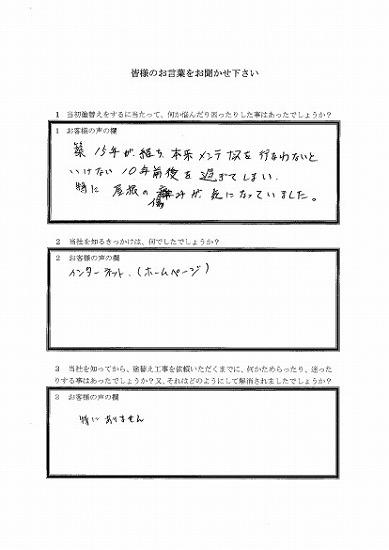 皆様のお言葉をお聞かせ下さい
1 当初塗替えをするに当たって、何か悩んだり困ったりした事はあったでしょうか?
1 お客様の声の欄
築15年が経ち、本来メンテナンスを行なわないと
いけない10年前後を過ぎてしまい、
特に屋根の傷みが気になっていました。
2 当社を知るきっかけは、何でしたでしょうか?
2 お客様の声の欄
インターネット.(ホームページ)
3 当社を知ってから、塗替え工事を依頼いただくまでに、何かためらったり、迷った
りする事はあったでしょうか?又、それはどのようにして解消されましたでしょうか?
3 お客様の声の欄
特にありません